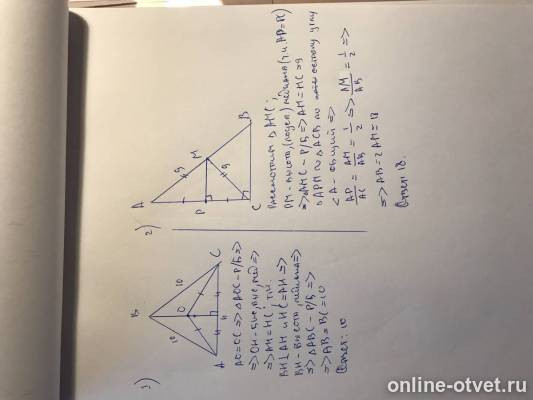 1)
B
10
10
O
A
H
C
AO=OC => △AOC - Р/Б =>
=> OH - бис, выс, мед =>
=> AH = HC, т.к.
BH⊥AH и HC=AH =>
BH - высота, медиана =>
=> △ABC - Р/Б =>
=> AB = BC = 10
Ответ: 10
2)
A
9
M
9
B
P
C
Рассмотрим △AMC:
PM - высота, медиана (т.к. AP=PC)
=> △AMC - Р/Б => AM = MC = 9
△APM ∾ △ACB по острому углу
<A - общий =>
AP/AC = AM/AB = 1/2 => AM/AB = 1/2 =>
=> AB = 2AM = 18
Ответ 18.
online-otvet.ru